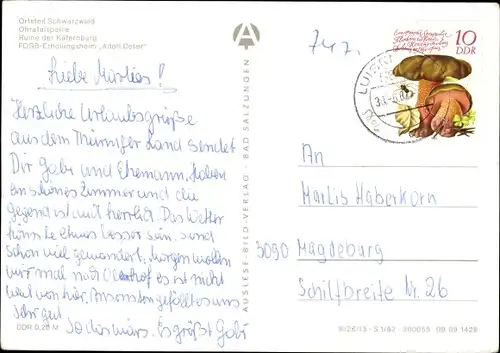 Ortsteil Schwarzwald
Ohratalsperre
Ruine der Käfernburg
FDGB-Erholungsheim „Adolf Deter"
Liebe Marlies!
Herzliche Urlaubsgrüße
aus dem Thüringer Land sendet
Dir Gabi und Ehemann. Haben
ein schönes Zimmer und die
Gegend ist auch herrlich. Das Wetter
könnte etwas besser sein. sind
schon viel gewandert, Morgen wollen
wir mal nach Oberhof es ist nicht
weit von hier. Ansonsten gefällt es uns
sehr gut.
So das wärs. Es grüßt Gabi
DDR 0,20 M
AUSLESE-BILD-VERLAG · BAD SALZUNGEN
10
DDR
LUISENTHAL
5806
An
Marlis Haberkorn
3090 Magdeburg
Schilfbreite Nr. 26
S 1/82 300055 09 09 1429